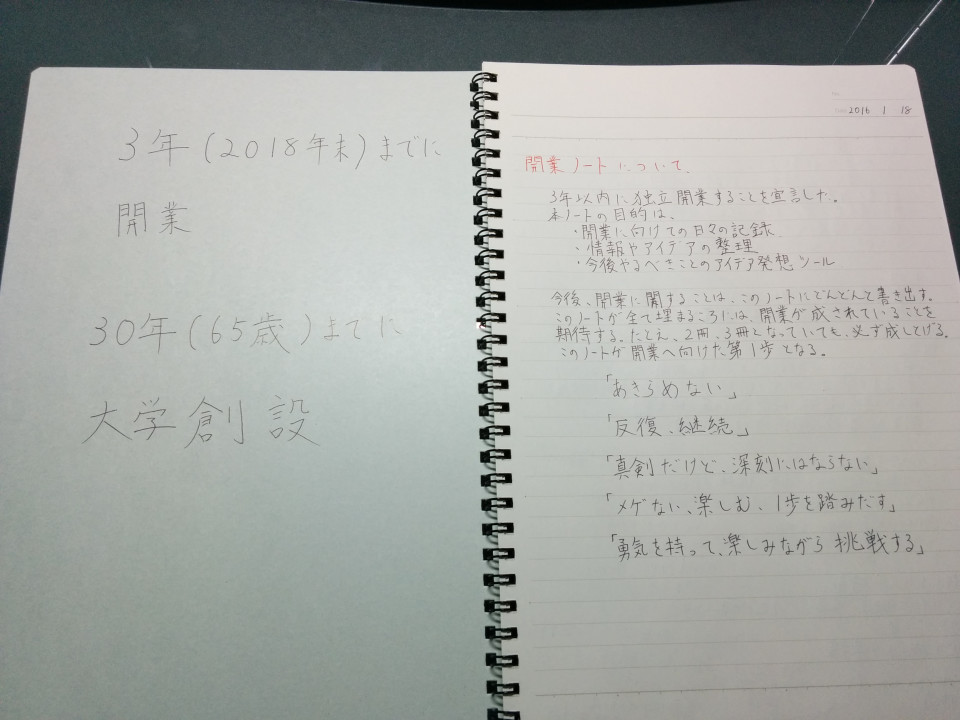 3年(2018年末)までに
開業
30年(65歳)までに
大学創設
2016 1 18
開業ノートについて.
3年以内に独立開業することを宣言した.
本ノートの目的は、
・開業に向けての日々の記録
・情報やアイデアの整理
・今後やるべきことのアイデア発想ツール
今後、開業に関することは、このノートにどんどんと書き出す.
このノートが全て埋まるころには、開業が成されていることを
期待する.たとえ、2冊、3冊となっていても、必ず成しとげる.
このノートが開業へ向けた第1歩となる.
「あきらめない」
「反復、継続」
「真剣だけど、深刻にはならない」
「メゲない、楽しむ、1歩を踏みだす」
「勇気を持って、楽しみながら挑戦する」